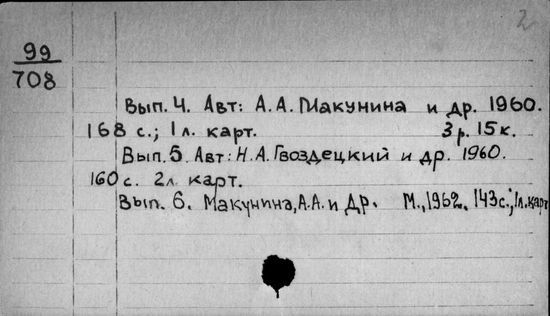 2
99
708
Вып. 4. Авт: А.А. Макунина и др. 1960.
168 с.; 1 л. карт. 3 р. 15 к.
Вып. 5. Авт: Н.А. Гвоздецкий и др. 1960.
160 с. 2 л. карт.
Вып. 6. Макунина, А.А. и др. М., 1962. 143 с.; 1 л. карт